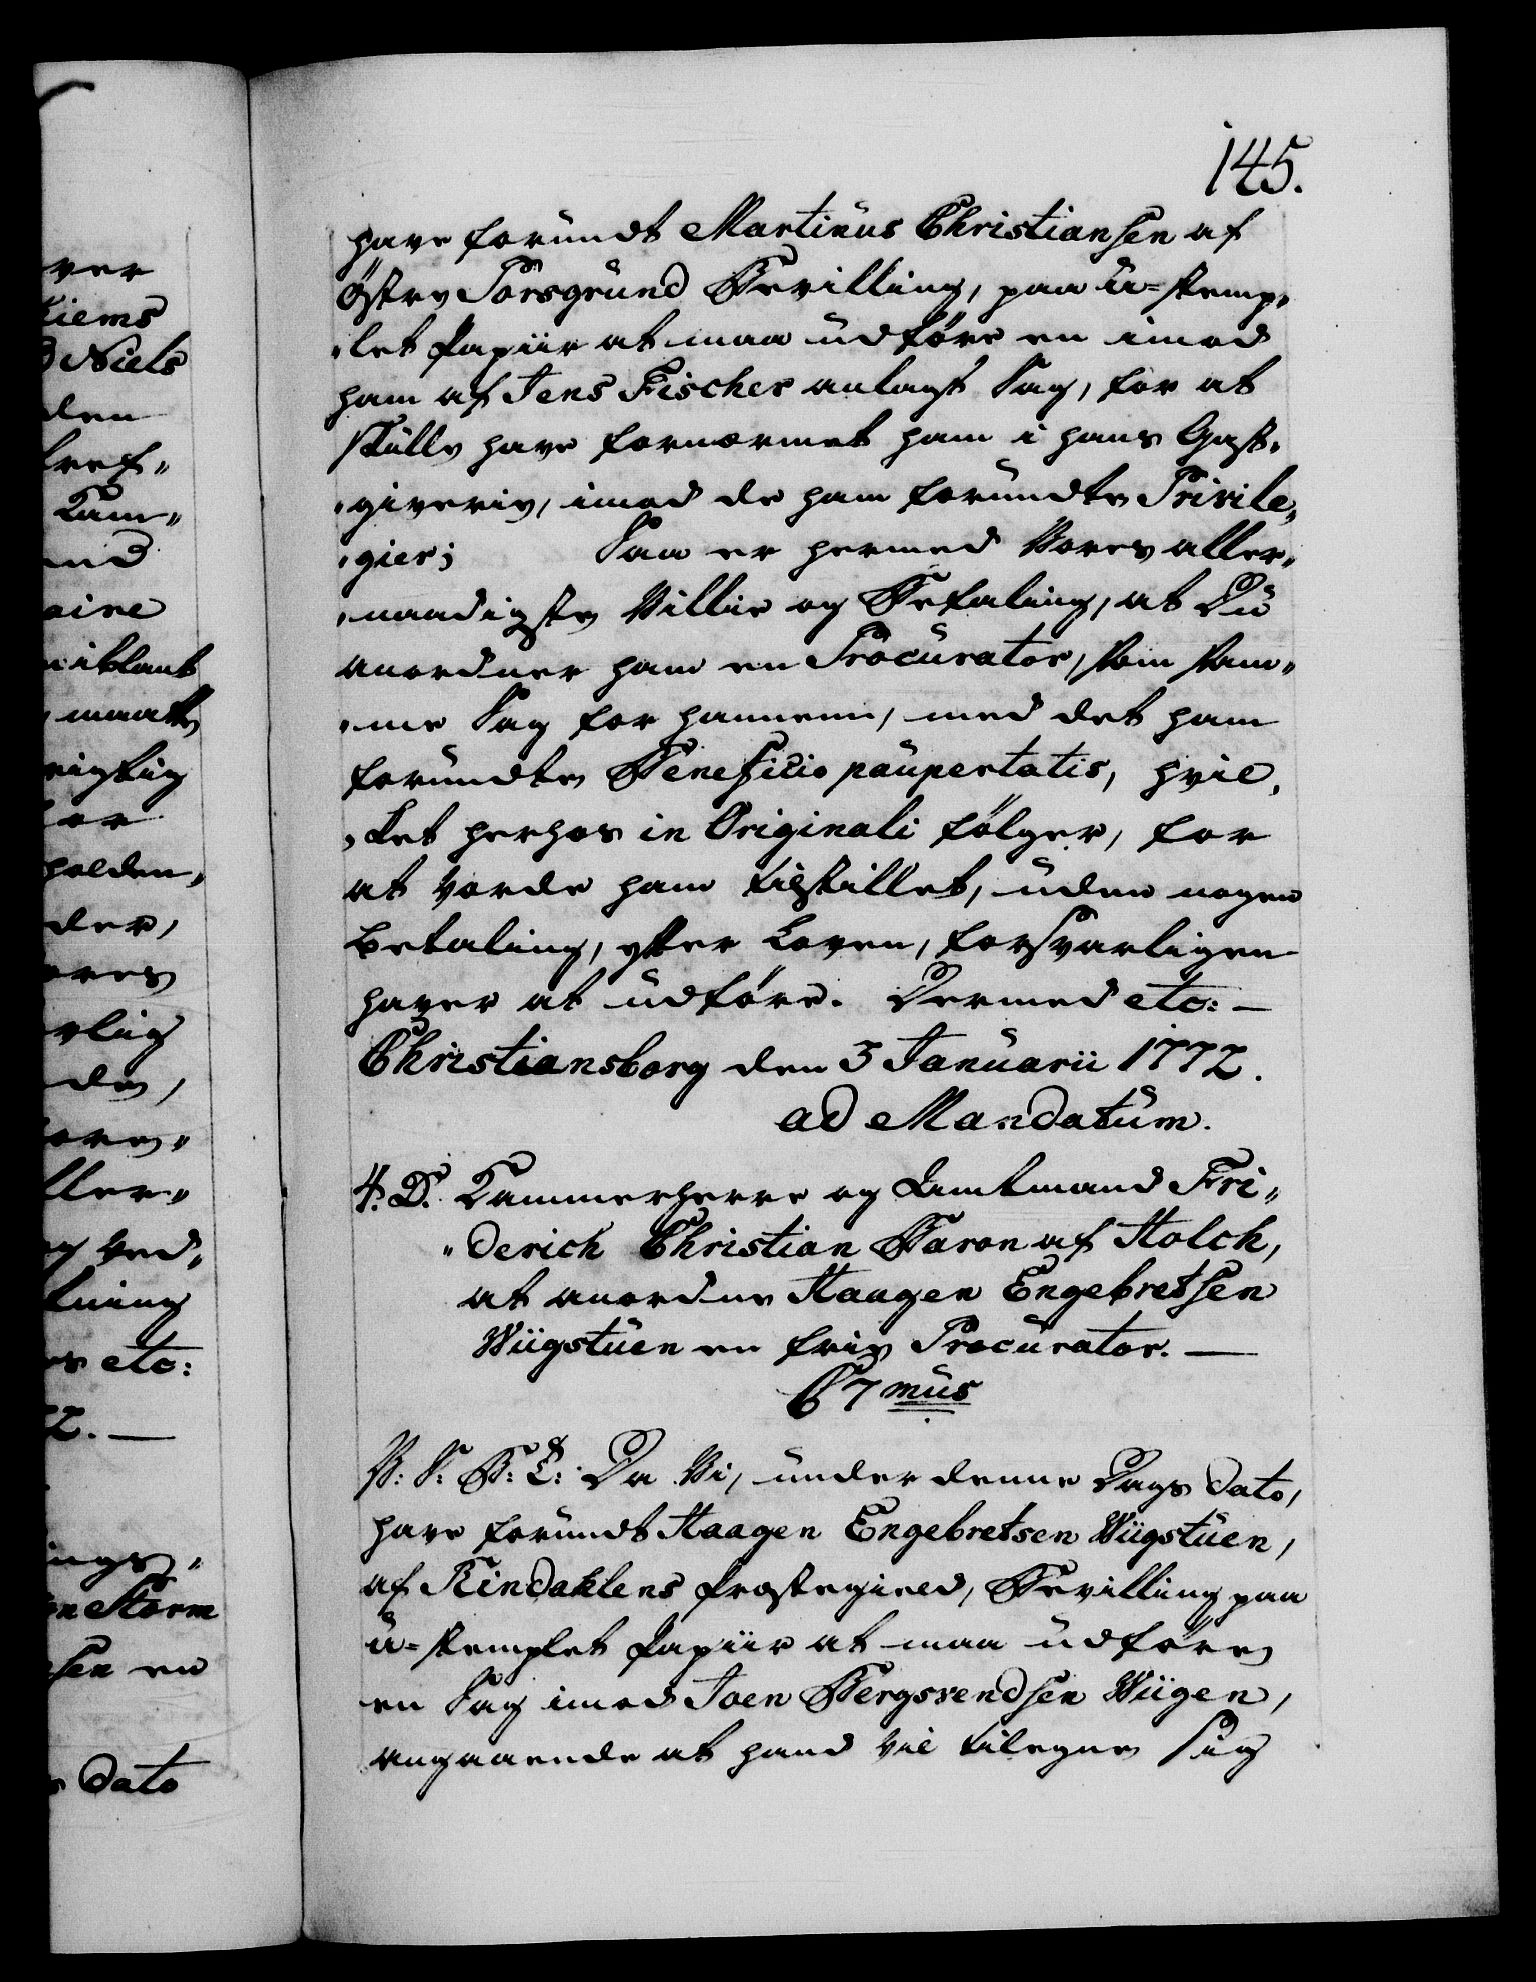 145.
have forundt Martinus Christiansen af
Østre Porsgrund Bevilling, paa u=stemp„
„let Papiir at maa udføre en imod
ham af Jens Fischer anlagt Sag, for at
skulle have fornærmet ham i hans Gæst„
„giverie, imod de ham forundte Privile„
„gier; Saa er hermed Vores aller„
„naadigste Villie og Befaling, at Du
anordner ham en Procurator, som sam„
„me Sag for hannem, med det ham
forundte Beneficio paupertatis, hvil„
„ket herhos in Originali følger, for
at vorde ham tilstillet, uden nogen
betaling, efter Loven, forsvarligen
haver at udføre. Dermed etc: —
Christiansborg den 3 Januarii 1772.
ad Mandatum.
4. D. Cammerherre og Amtmand Fri„
„derich Christian Baron af Holck,
at anordne Haagen Engebretsen
Wiigstuen en frie Procurator. —
C 7mus
V: S: B: T: Da Vi, under denne Dags Dato,
have forundt Haagen Engebretsen Wiigstuen,
af Rindahlens Præstegield, Bevilling paa
u=stemplet Papiir at maa udføre
en Sag imod Joen Bergsvendsen Wiigen,
angaaende at hand vil tilegne sig
ver
Kiems
Niels
den
Cam„
aire
maatte
rigtig
for
holden„
der,
ores
de,
ller„
og ved„
etc:
2. —
Storm
sen en
Dato